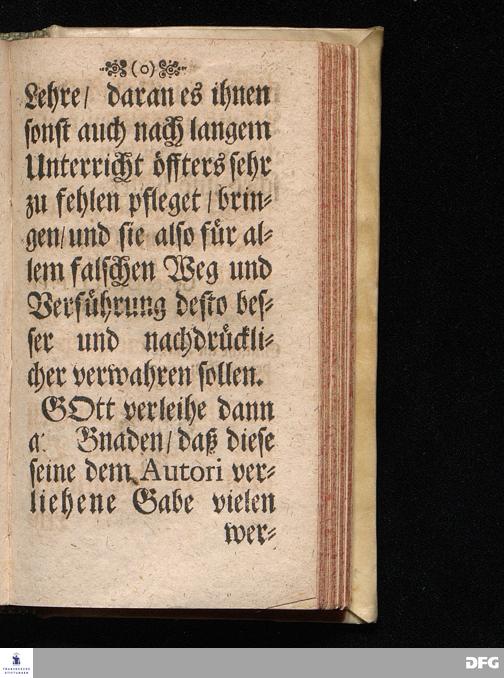 (o)
Lehre/ daran es ihnen
sonst auch nach langem
Unterricht öffters sehr
zu fehlen pfleget / brin-
gen/ und sie also für al-
lem falschen Weg und
Verführung desto bes-
ser und nachdrückli-
cher verwahren sollen.
GOtt verleihe dann
Gnaden/ daß diese
seine dem Autori ver-
liehene Gabe vielen
wer-
FRANCKESCHE
STIFTUNGEN
DFG